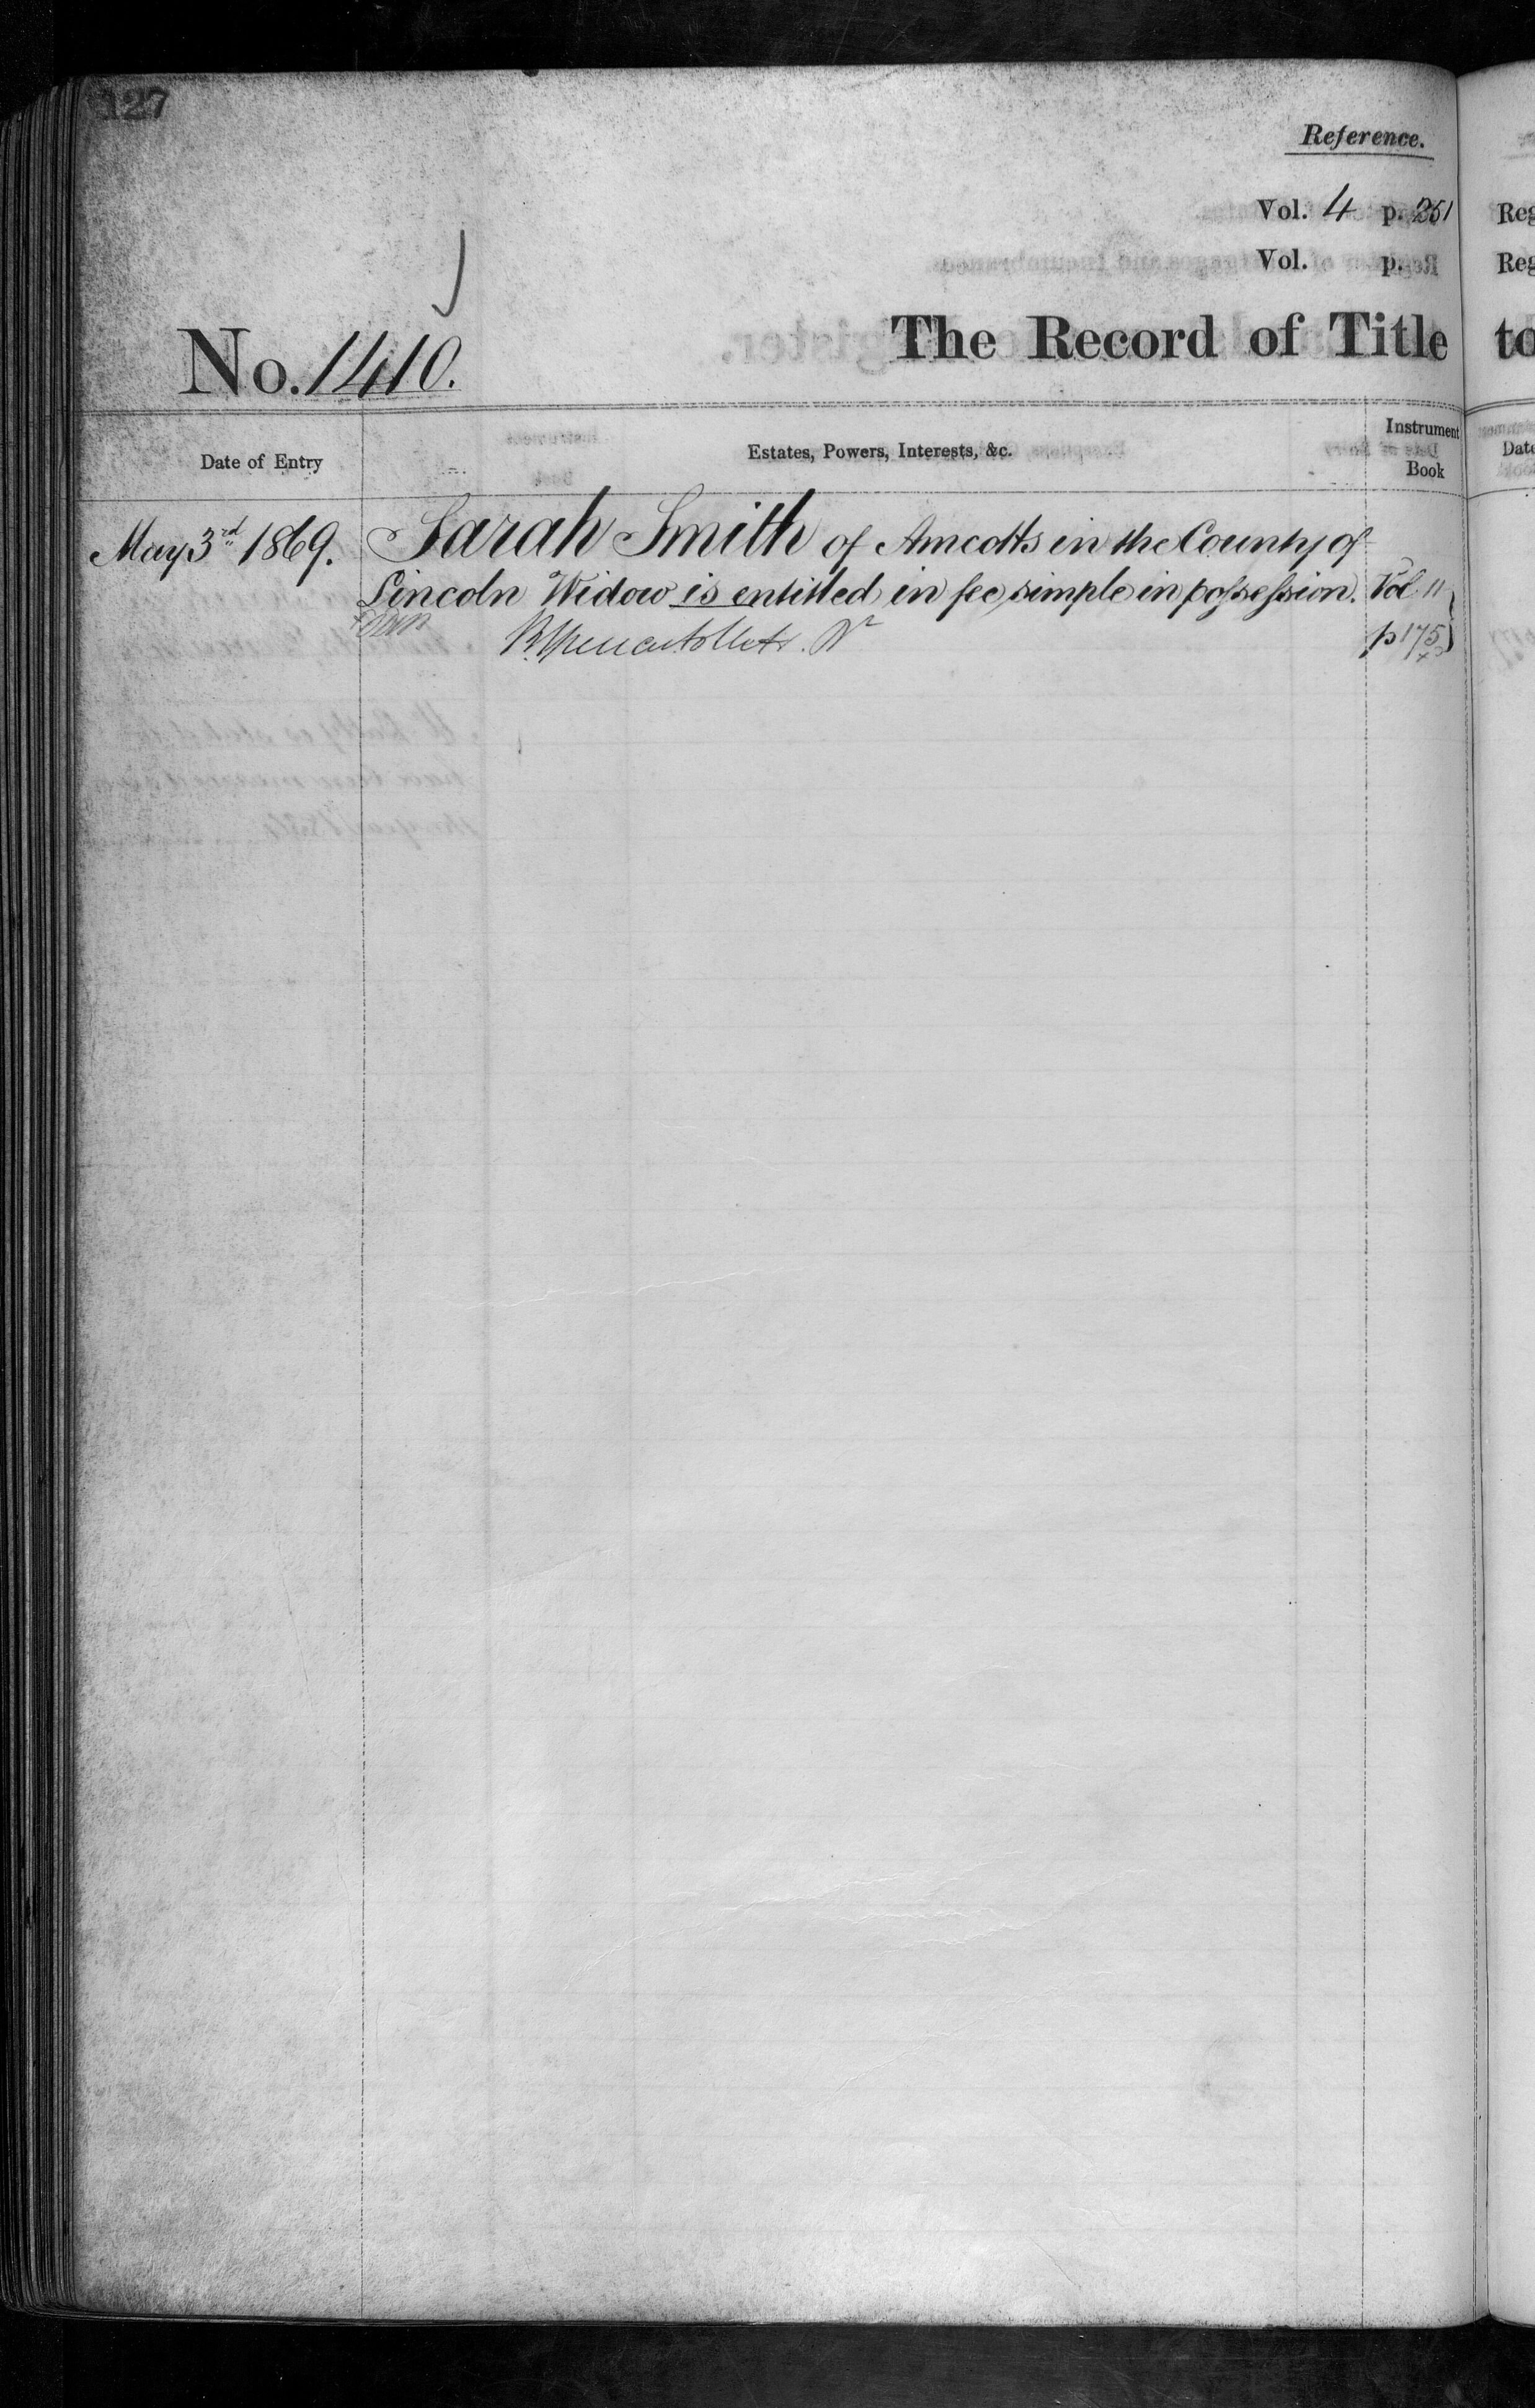 127
Reference.
Vol. 4 p. 251 Reg
Vol. p. Reg
No. 1410. The Record of Title to
Date of Entry Estates, Powers, Interests, &c. Instrument Book Date
May 3rd 1869. Sarah Smith of Amcotts in the County of
Lincoln Widow is entitled in fee simple in possession. Vol 11
p 175